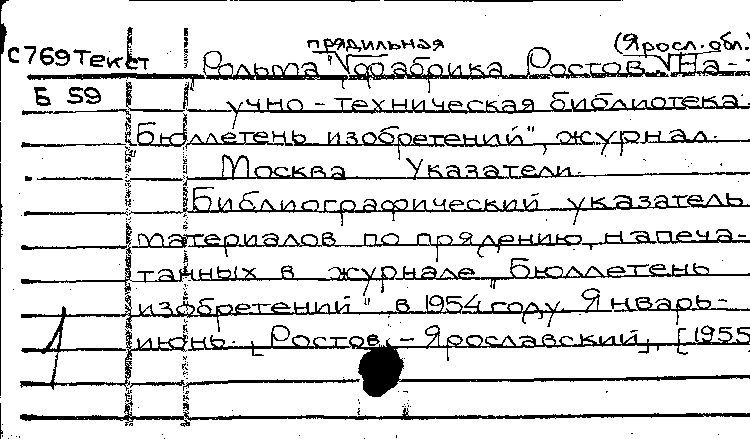 прядильная (Яросл. обл.)
С769Текст "Рольма" V фабрика Ростов V На-
Б 59 учно-техническая библиотека.
"Бюллетень изобретений", журнал.
Москва Указатели.
Библиографический указатель
материалов по прядению, напеча-
танных в журнале "Бюллетень
изобретений" в 1954 году. Январь-
июнь. [Ростов, - Ярославский], [1955
1